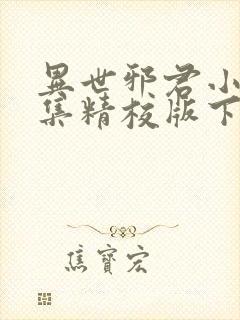 異世邪君小
集精校版下
焦寶宏